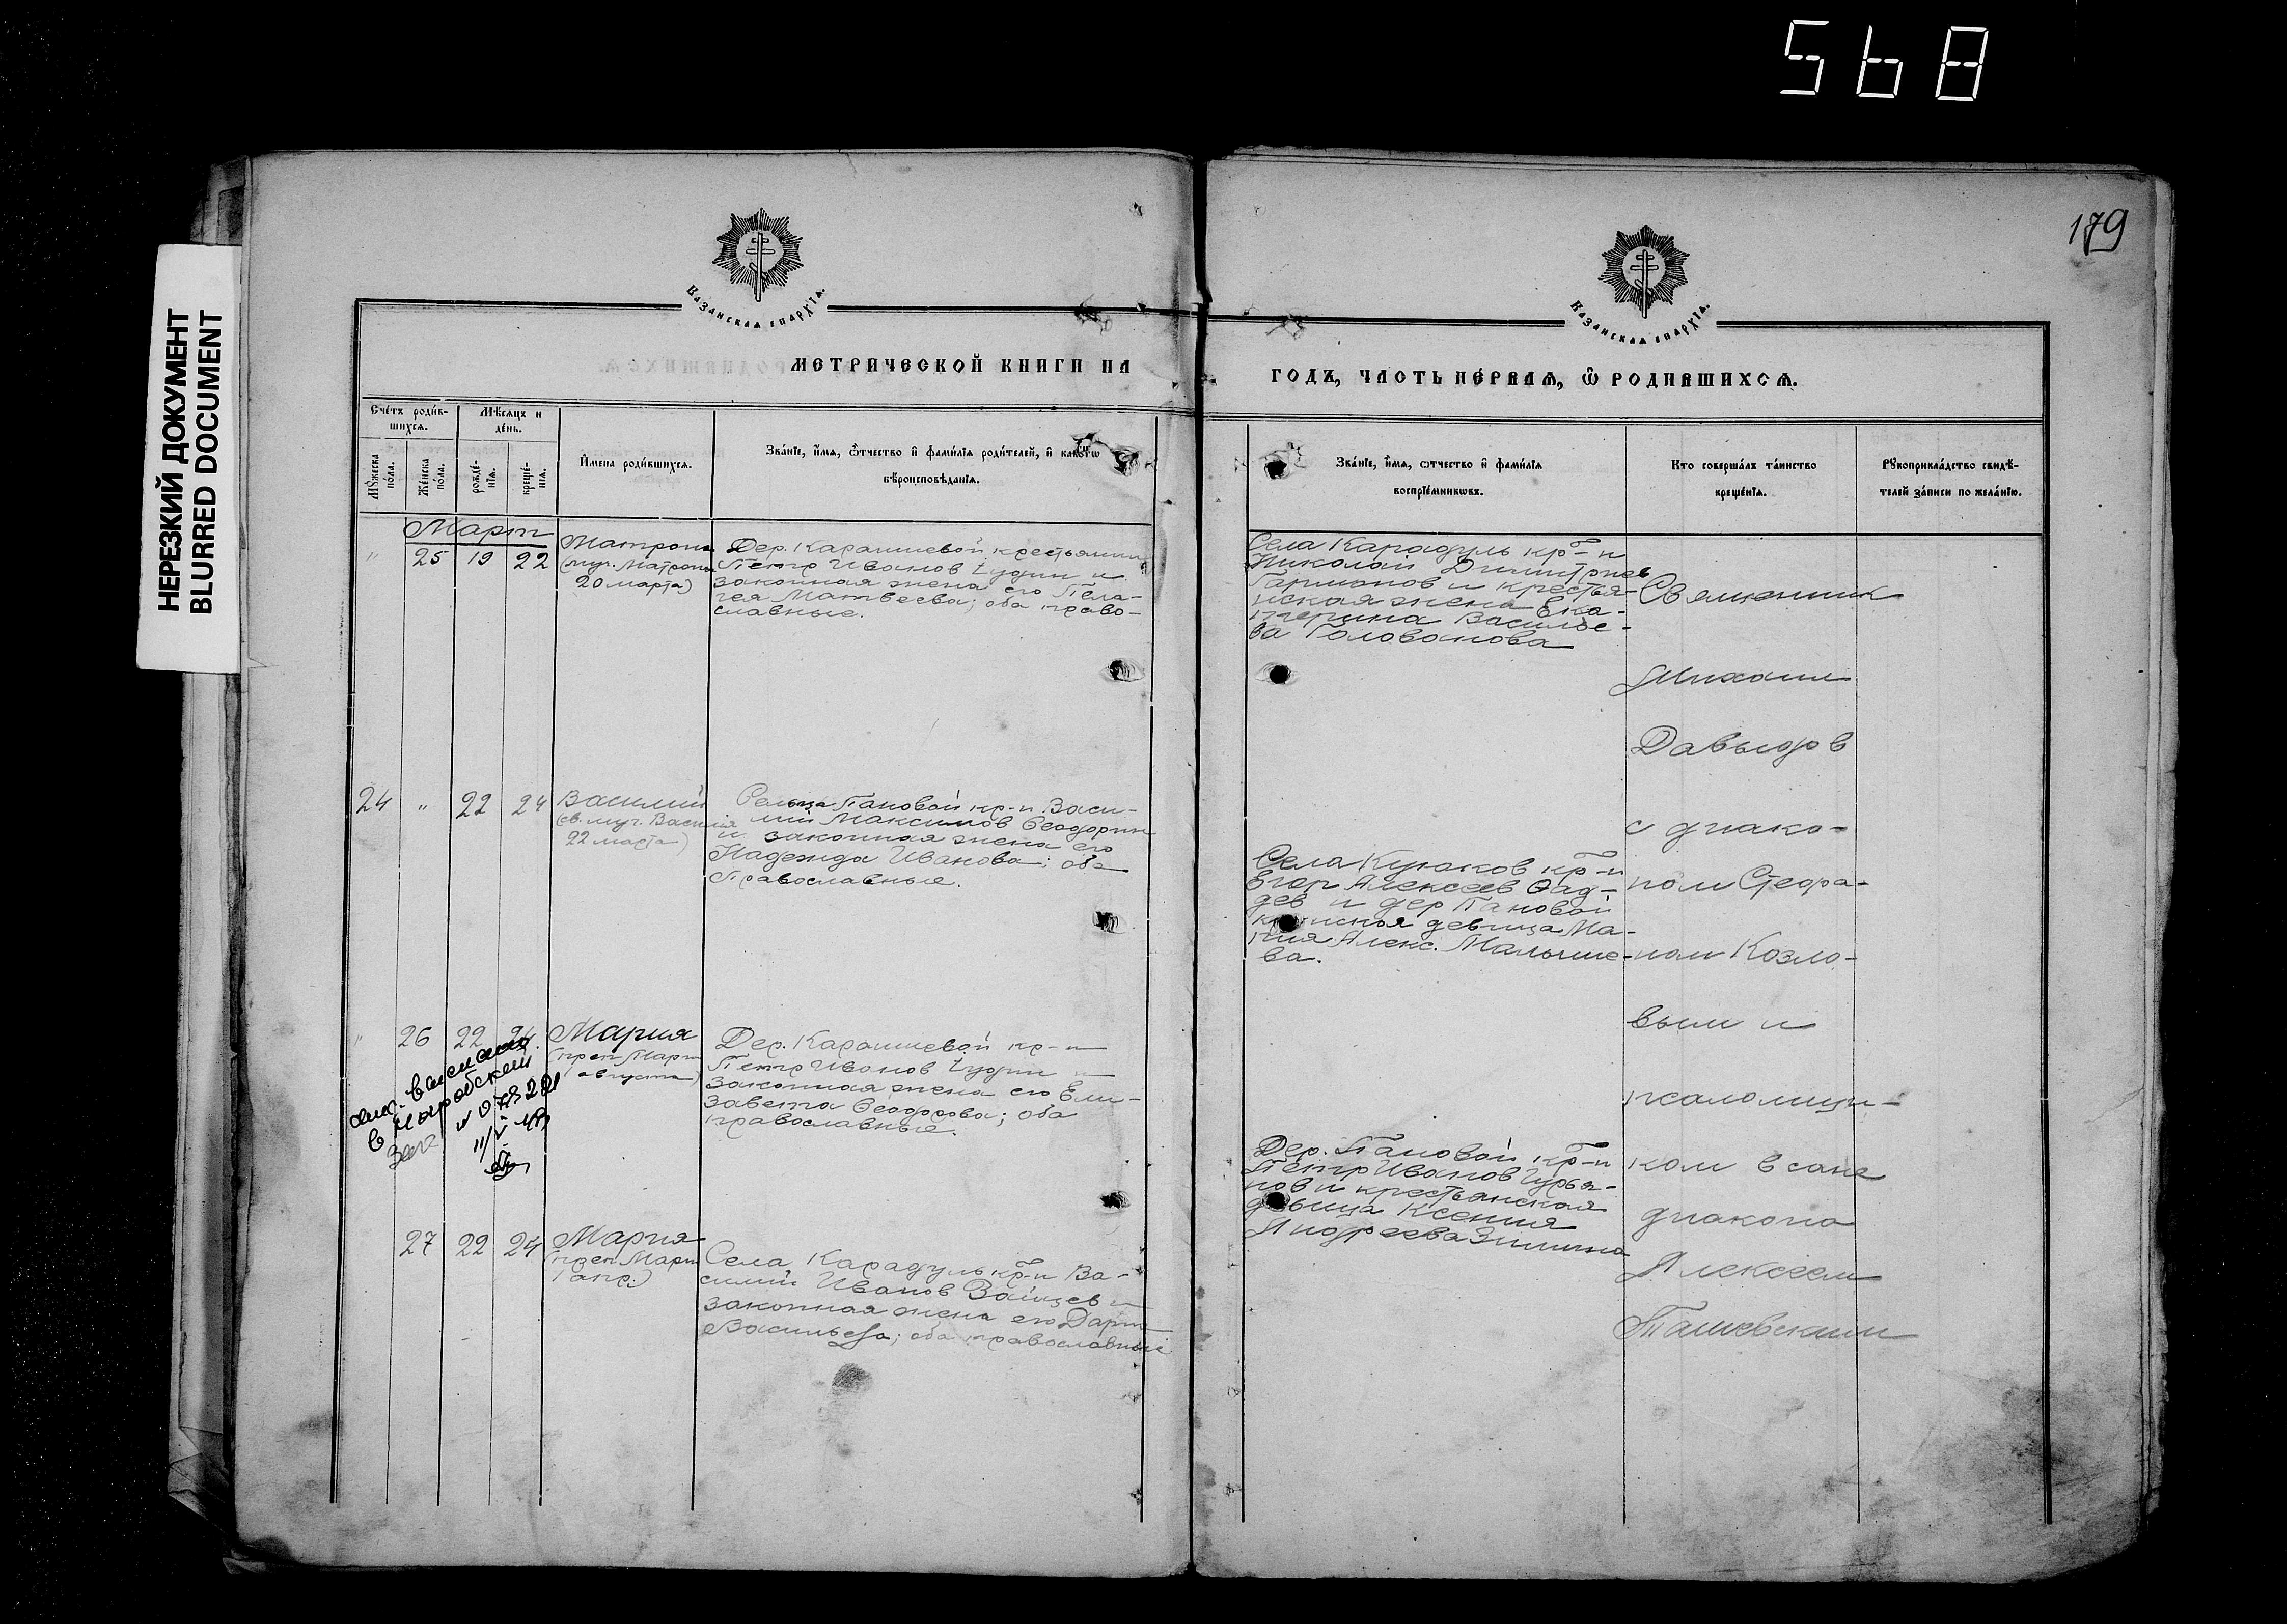 568
НЕРЕЗКИЙ ДОКУМЕНТ
BLURRED DOCUMENT
179
Казанская епархїѧ.
Казанская епархїѧ.
МЕТРИЧЕСКОЙ КНИГИ НА
ГОДЪ, ЧАСТЬ ПЕ́РВАѦ, Ѡ҆ РОДИ́ВШИХСѦ.
Сче́тъ роди́в-
шихсѧ.
Мѣсѧцъ и
де́нь.
Мꙋ́жеска
по́ла.
Же́нска
по́ла.
рожде́-
нїѧ.
креще́-
нїѧ.
И҆мена роди́вшихсѧ.
Зва́нїе, и҆́мѧ, ѻ҆́тчество и҆ фами́лїѧ роди́телей, и҆ како́гѡ
вѣроисповѣ́данїѧ.
Зва́нїе, и҆́мѧ, ѻ҆тчество и҆ фами́лїѧ
воспрїе́мникѡвъ.
Кто соверша́лъ та́инство
креще́нїѧ.
Рꙋкоприкла́дство свидѣ́-
телей за́писи по жела́нїю.
Март
" 25 19 22
Матрона
(муч. Матроны
20 марта)
Дер. Караишевой крестьянин
Петр Иванов Чудин и
законная жена его Пела-
гея Матвеева; оба право-
славные.
Села Карадуль кр-н
Николай Димитриев
Гармонов и крестья-
нская жена Ека-
терина Василье-
ва Голованова
Священник
Михаил
Давыдов
с диако-
ном Стефа-
ном Козло-
вым и
псаломщи-
ком в сане
диакона
Алексеем
Ташевским
24 " 22 24
Василий
(св. муч. Василия
22 марта)
Сельца Пановой кр-н Васи-
лий Максимов Феодорин
и законная жена его
Надежда Иванова; оба
православные.
Села Куюков кр-н
Егор Алексеев Фад-
деев и дер Пановой
кр-нская девица Ма-
рия Алекс. Малыше-
ва.
" 26 22 24
Мария
(преп. Марии
1 августа)
Дер. Караишевой кр-н
Петр Иванов Чудин и
законная жена его Ели-
завета Феодорова; оба
православные.
в
Дер. Пановой кр-н
Петр Иванов Гурья-
нов и крестьянская
девица Ксения
Андреева Зимина
27 22 24
Мария
(преп. Марии
1 апр.)
Села Карадуль кр-н Ва-
силий Иванов Зайцев и
законная жена его Дарья
Васильева; оба православные